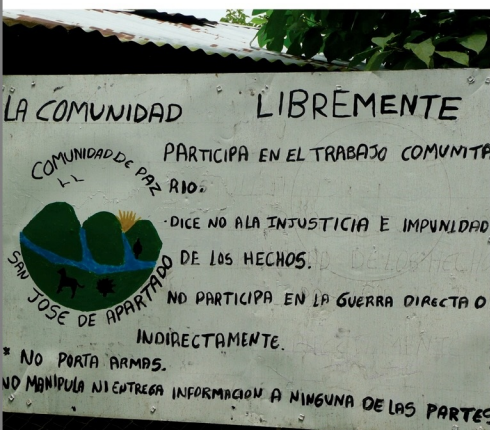 LA COMUNIDAD LIBREMENTE
COMUNIDAD DE PAZ
SAN JOSE DE APARTADO
PARTICIPA EN EL TRABAJO COMUNITA
RIO.
·DICE NO A LA INJUSTICIA E IMPUNIDAD
DE LOS HECHOS.
NO PARTICIPA EN LA GUERRA DIRECTA O
INDIRECTAMENTE.
* NO PORTA ARMAS.
NO MANIPULA NI ENTREGA INFORMACION A NINGUNA DE LAS PARTES